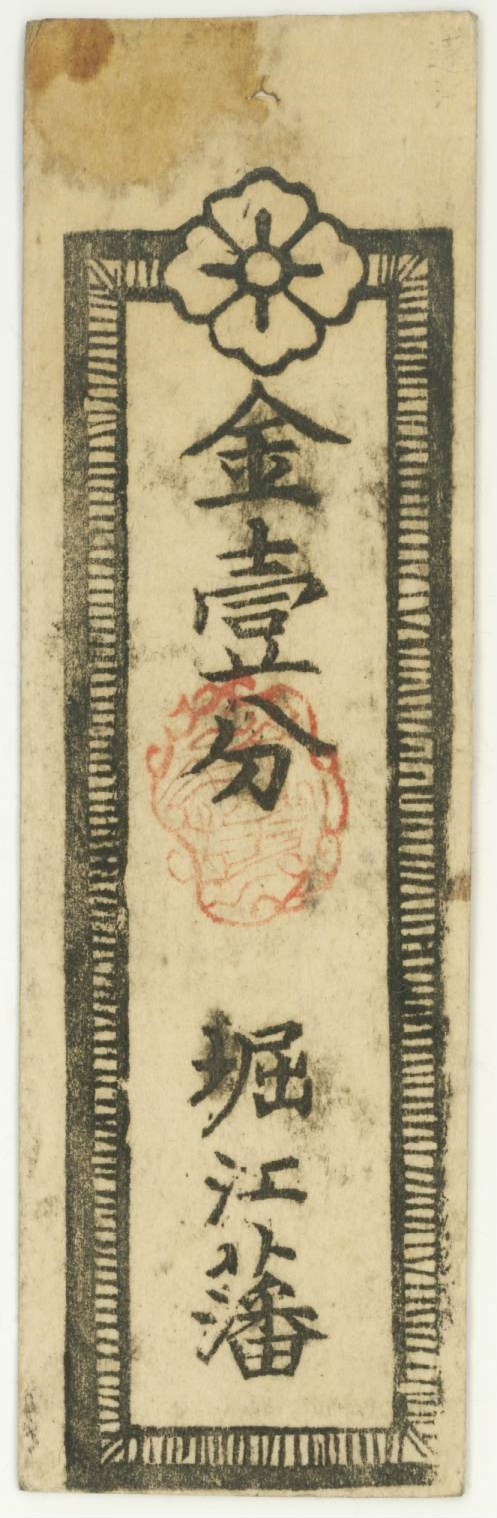 金壹分
堀江藩